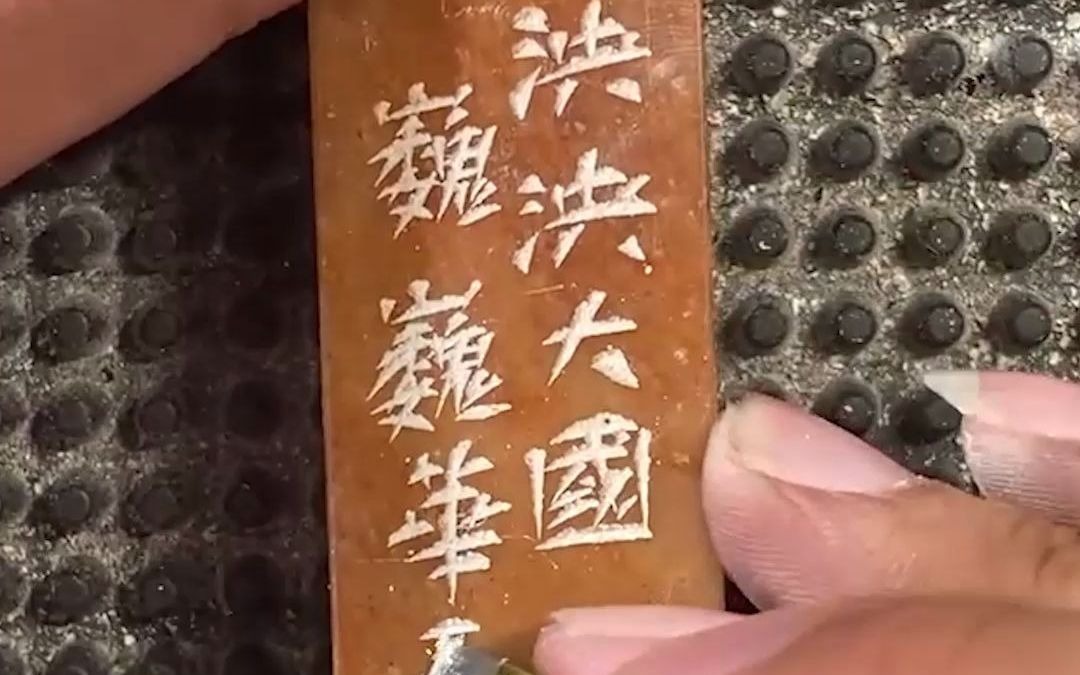 洪洪大國
巍巍華